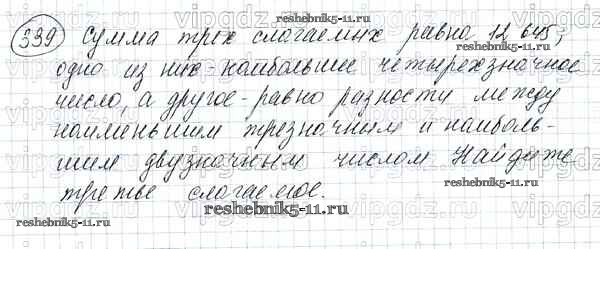 339 Сумма трех слагаемых равна 12 645,
одно из них - наибольшее четырехзначное
число, а другое - равно разности между
наименьшим трезначным и наиболь-
шим двузначным числом. Найдите
третье слагаемое.
reshebnik5-11.ru
reshebnik5-11.ru
reshebnik5-11.ru
reshebnik5-11.ru
reshebnik5-11.ru
reshebnik5-11.ru
vipgdz.ru